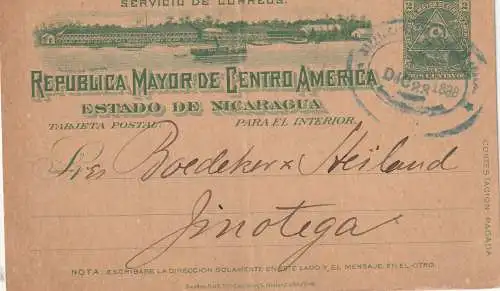 SERVICIO DE CORREOS.
REPUBLICA MAYOR DE CENTRO AMERICA
ESTADO DE NICARAGUA
TARJETA POSTAL. PARA EL INTERIOR.
Sres Boedeker & Heiland
Jinotega
CONTESTACION PAGADA
NOTA: ESCRIBASE LA DIRECCION SOLAMENTE EN ESTE LADO Y EL MENSAJE EN EL OTRO.
2 2
DIC 22 1898